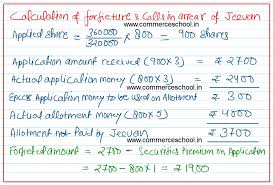 Calculation of forfeiture & Calls in arrear of Jeevan
www.commerceschool.in
Applied share = 360000/320000 × 800 = 900 shares
www.commerceschool.in
Application amount received (900×3) = ₹ 2700
Actual application money (800×3) = ₹ 2400
Excess Application money to be used on Allotment ₹ 300
Actual allotment money (800×5) ₹ 4000
Allotment not Paid by Jeevan ₹ 3700
Forfeited amount = 2700 - Securities Premium on Application
= 2700 - 800×1 = ₹ 1900
www.commerceschool.in